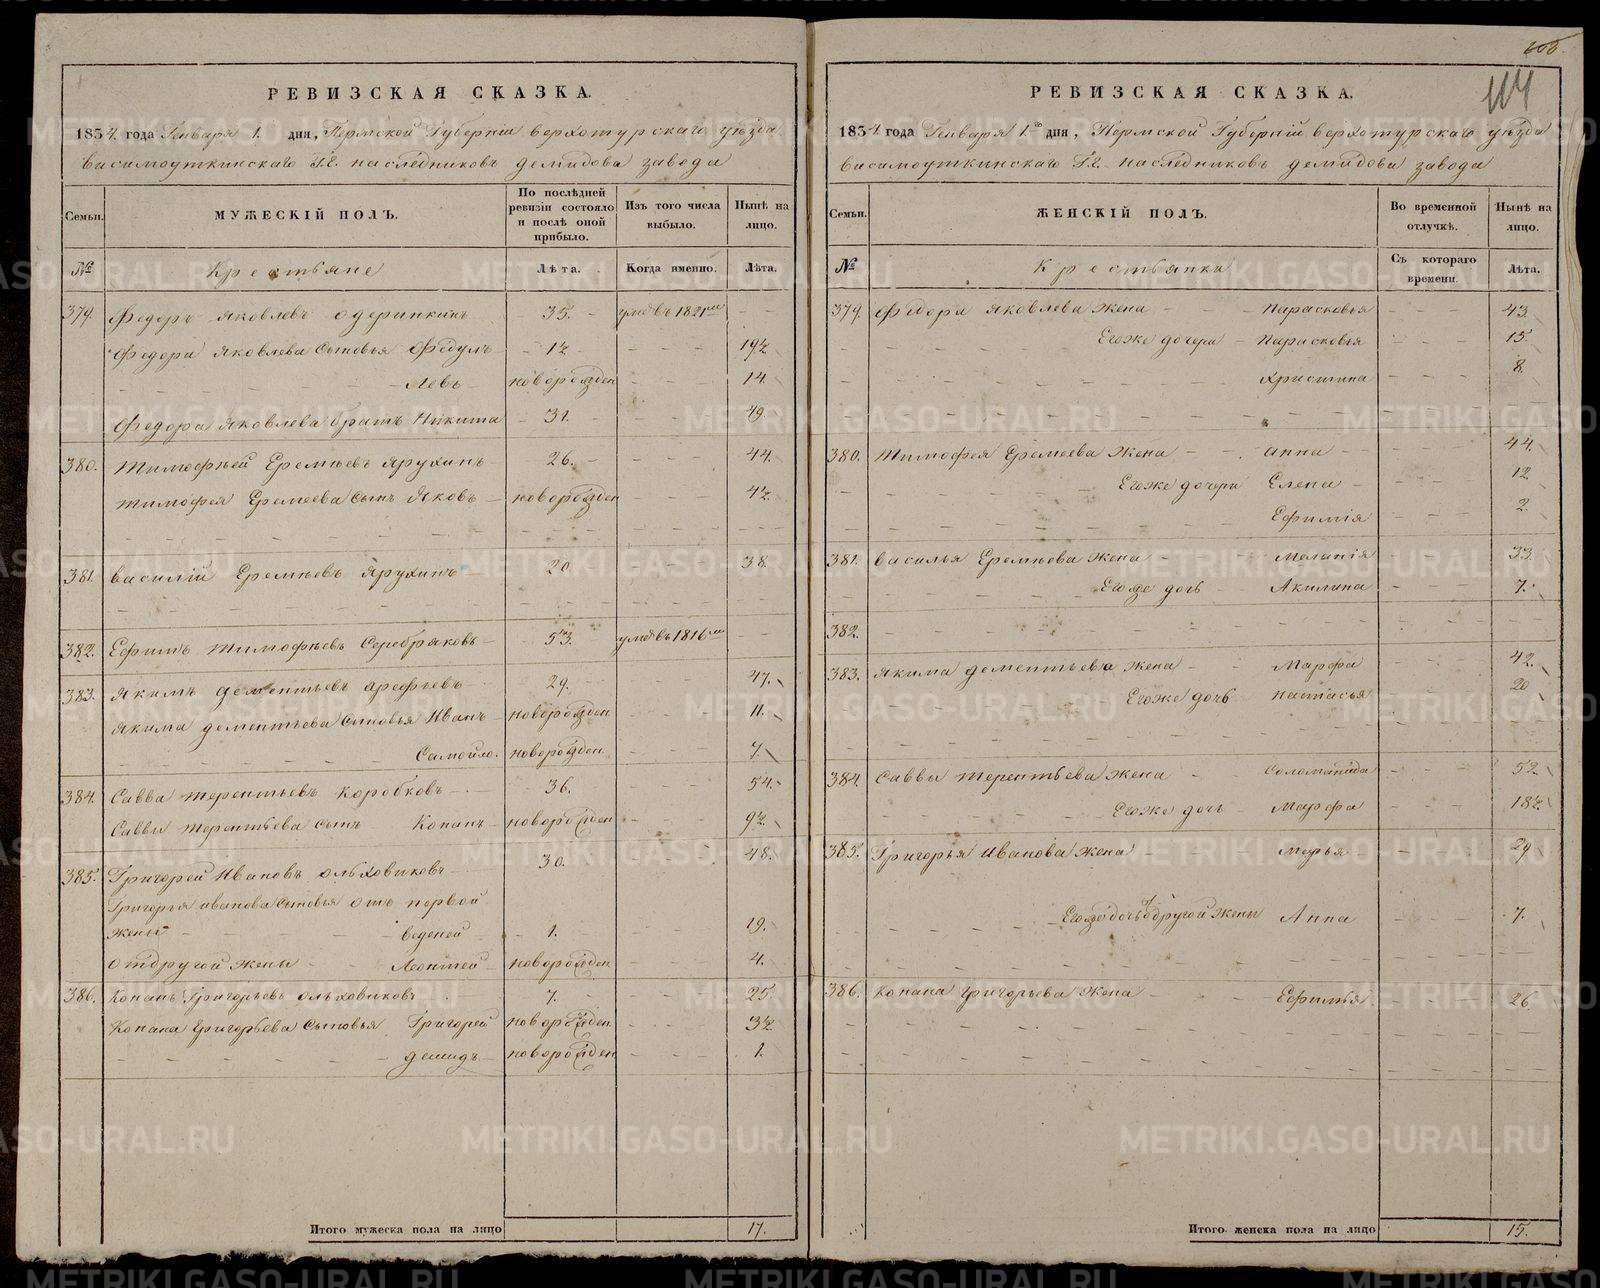 РЕВИЗСКАЯ СКАЗКА.
1834 года Генваря 1. дня, Пермской Губерніи верхотурскаго уѣзда
висимоуткинскаго Г.г. наслѣдниковъ демидова завода
Семьи.
МУЖЕСКІЙ ПОЛЪ.
По послѣдней ревизіи состояло и послѣ оной прибыло.
Изъ того числа выбыло.
Нынѣ на лицо.
№
Крестьяне
Лѣта.
Когда именно.
Лѣта.
379. Федоръ Яковлевъ одеринкинъ 35. умѣ въ 1821м
Федора Яковлева Сыновья Федулъ 1½ 19½
Левъ новорожден 14.
Федора Яковлева братъ Никита 31. 49.
380. Тимофѣей Еремѣевъ Ярухинъ 26. 44.
Тимофея Еремеева Сынъ Яковъ новорожден 4½
381. Василій Еремѣевъ Ярухинъ 20 38.
382. Ефимъ Тимофѣевъ Серебряковъ 53. умѣ въ 1816м
383. Якимъ дементьевъ арефьевъ 29. 47.
Якима дементьева Сыновья Иванъ новорожден 11.
Самойло. новорожден 7.
384. Савва терентьевъ Коробковъ 36. 54.
Саввы терентьева Сынъ Конанъ новорожден 9½
385. Григорей Ивановъ ольховиковъ 30. 48.
Григорья иванова Сыновья отъ первой
жены веденей 1. 19.
отдругой жены Леонтей новорожден 4.
386. Конанъ Григорьевъ ольховиковъ 7. 25.
Конана григорьева Сыновья Григорей новорожден 3½
демидъ новорожден 1.
Итого мужеска пола на лицо 17.
603.
114
РЕВИЗСКАЯ СКАЗКА.
1834 года Генваря 1го дня, Пермской Губерніи верхотурскаго уѣзда
висимоуткинскаго Г.г. наслѣдниковъ демидова завода
Семьи.
ЖЕНСКІЙ ПОЛЪ.
Во временной отлучкѣ.
Нынѣ на лицо.
№
Крестьянки
Съ котораго времени.
Лѣта.
379. Федора Яковлева Жена Парасковья 43.
Егоже дочери Парасковья 15.
Христина 8.
380. Тимофея Еремеева Жена Анна 44.
Егоже дочери Елена 12
Ефимія 2.
381. василья Еремѣева Жена Меланія 33.
Егоже дочь Акилина 7.
382.
383. Якима дементьева Жена Марфа 42.
Егоже дочь настасья 20
384. Саввы терентьева Жена Соломанида 52.
Егоже дочь Марфа 18½
385. Григорья Иванова Жена Марья 29.
Егоже дочь одругой Жены Анна 7.
386. Конана григорьева Жена Ефимья 26.
Итого женска пола на лицо 15.
METRIKI.GASO-URAL.RU